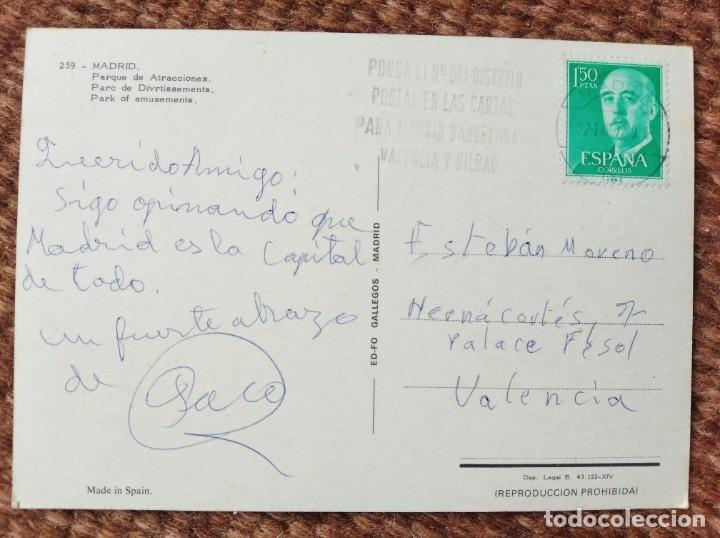 259 - MADRID.
Parque de Atracciones.
Parc de Divrtissements.
Park of amusements.
PONGA EL Nº DEL DISTRITO
POSTAL EN LAS CARTAS
PARA MADRID BARCELONA
VALENCIA Y BILBAO
1'50
PTAS
ESPAÑA
CORREOS
Querido Amigo:
Sigo opinando que
Madrid es la Capital
de todo.
un fuerte abrazo
de Paco
ED-FO GALLEGOS - MADRID
Estebán Moreno
Hernácortés,
Palace Fesol
Valencia
Made in Spain.
Dep. Legal B. 43.122-XIV
(REPRODUCCION PROHIBIDA)
todocoleccion.net